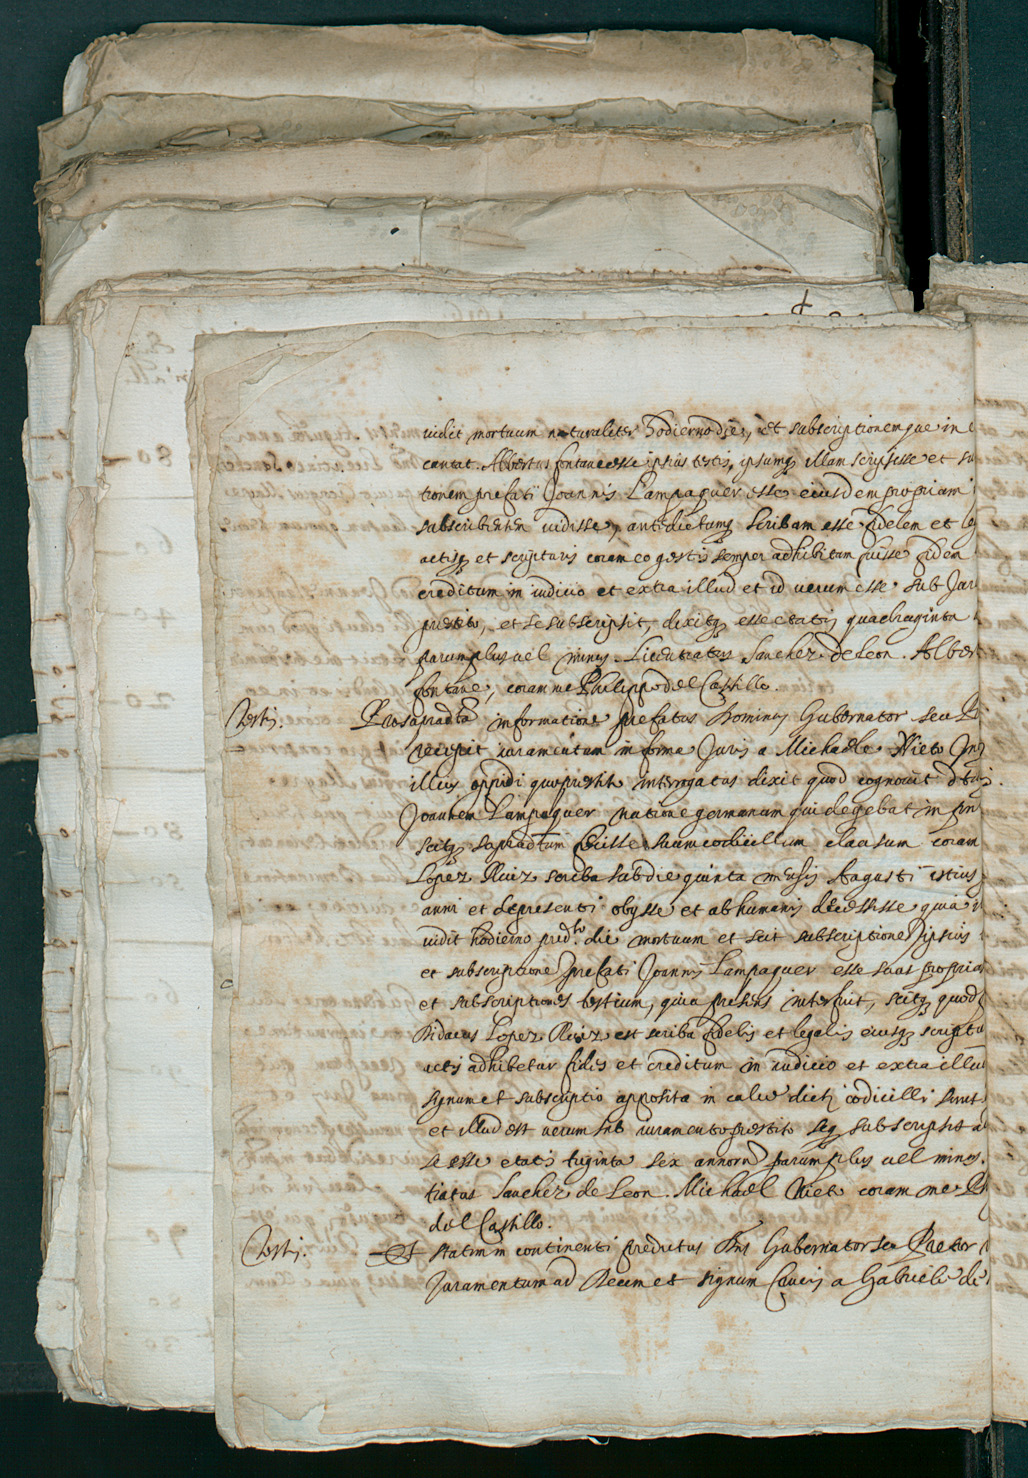 vidit mortuum naturaliter hodierno die, et subscriptionem que in
cantat. Albertus fontane esse ipsius testis, ipsumq illam scripsisse et su
tionem prefati Joannis Lampaguer esse eiusdem propriam
subscribentem vidisse, antedictumq scribam esse fidelem et le
actisq et scripturis coram eo gestis semper adhibitam fuisse fidem
creditum in iudicio et extra illud et id verum esse sub Jur
prestito, et se subscripsit, dixitq esse etatis quadraginta
parum plus vel minus. Licentiatus Sanchez de Leon. Alber
fontane, coram me Philippo del Castillo.
Testis. Pro supradta informatione prefatus Dominus Gubernator seu P
recepit iuramentum in forma Juris a Michaele Nieto
illius oppidi quo prestito interrogatus dixit quod cognovit
Joannem Lampaguer natione germanum qui degebat in
scitq supradtum fecisse suum codicillum clausum coram
Lopez Ruiz scriba sub die quinta mensis Augusti istius
anni et de presenti obysse et ab humanis decessisse quia
vidit hodierno predto die mortuum et scit subscriptione ipsius
et subscriptione prefati Joannis Lampaguer esse suas proprias
et subscriptiones testium, quia presens interfuit, scitq quod
Didacus Lopez Ruiz est scriba fidelis et legalis eiusq scriptu
actis adhibetur fides et creditum in iudicio et extra illu
signum et subscriptio apposita in calce dicti codicilli sunt
et illud est verum sub iuramento prestito seq subscripsit
se esse etatis triginta sex annorum parum plus vel minus.
tiatus Sanchez de Leon. Michael Nieto coram me
del Castillo.
Testis. Et statim in continenti predictus Dns Gubernator seu Pretor
Juramentum ad Deum et signum Crucis a Gabriele de